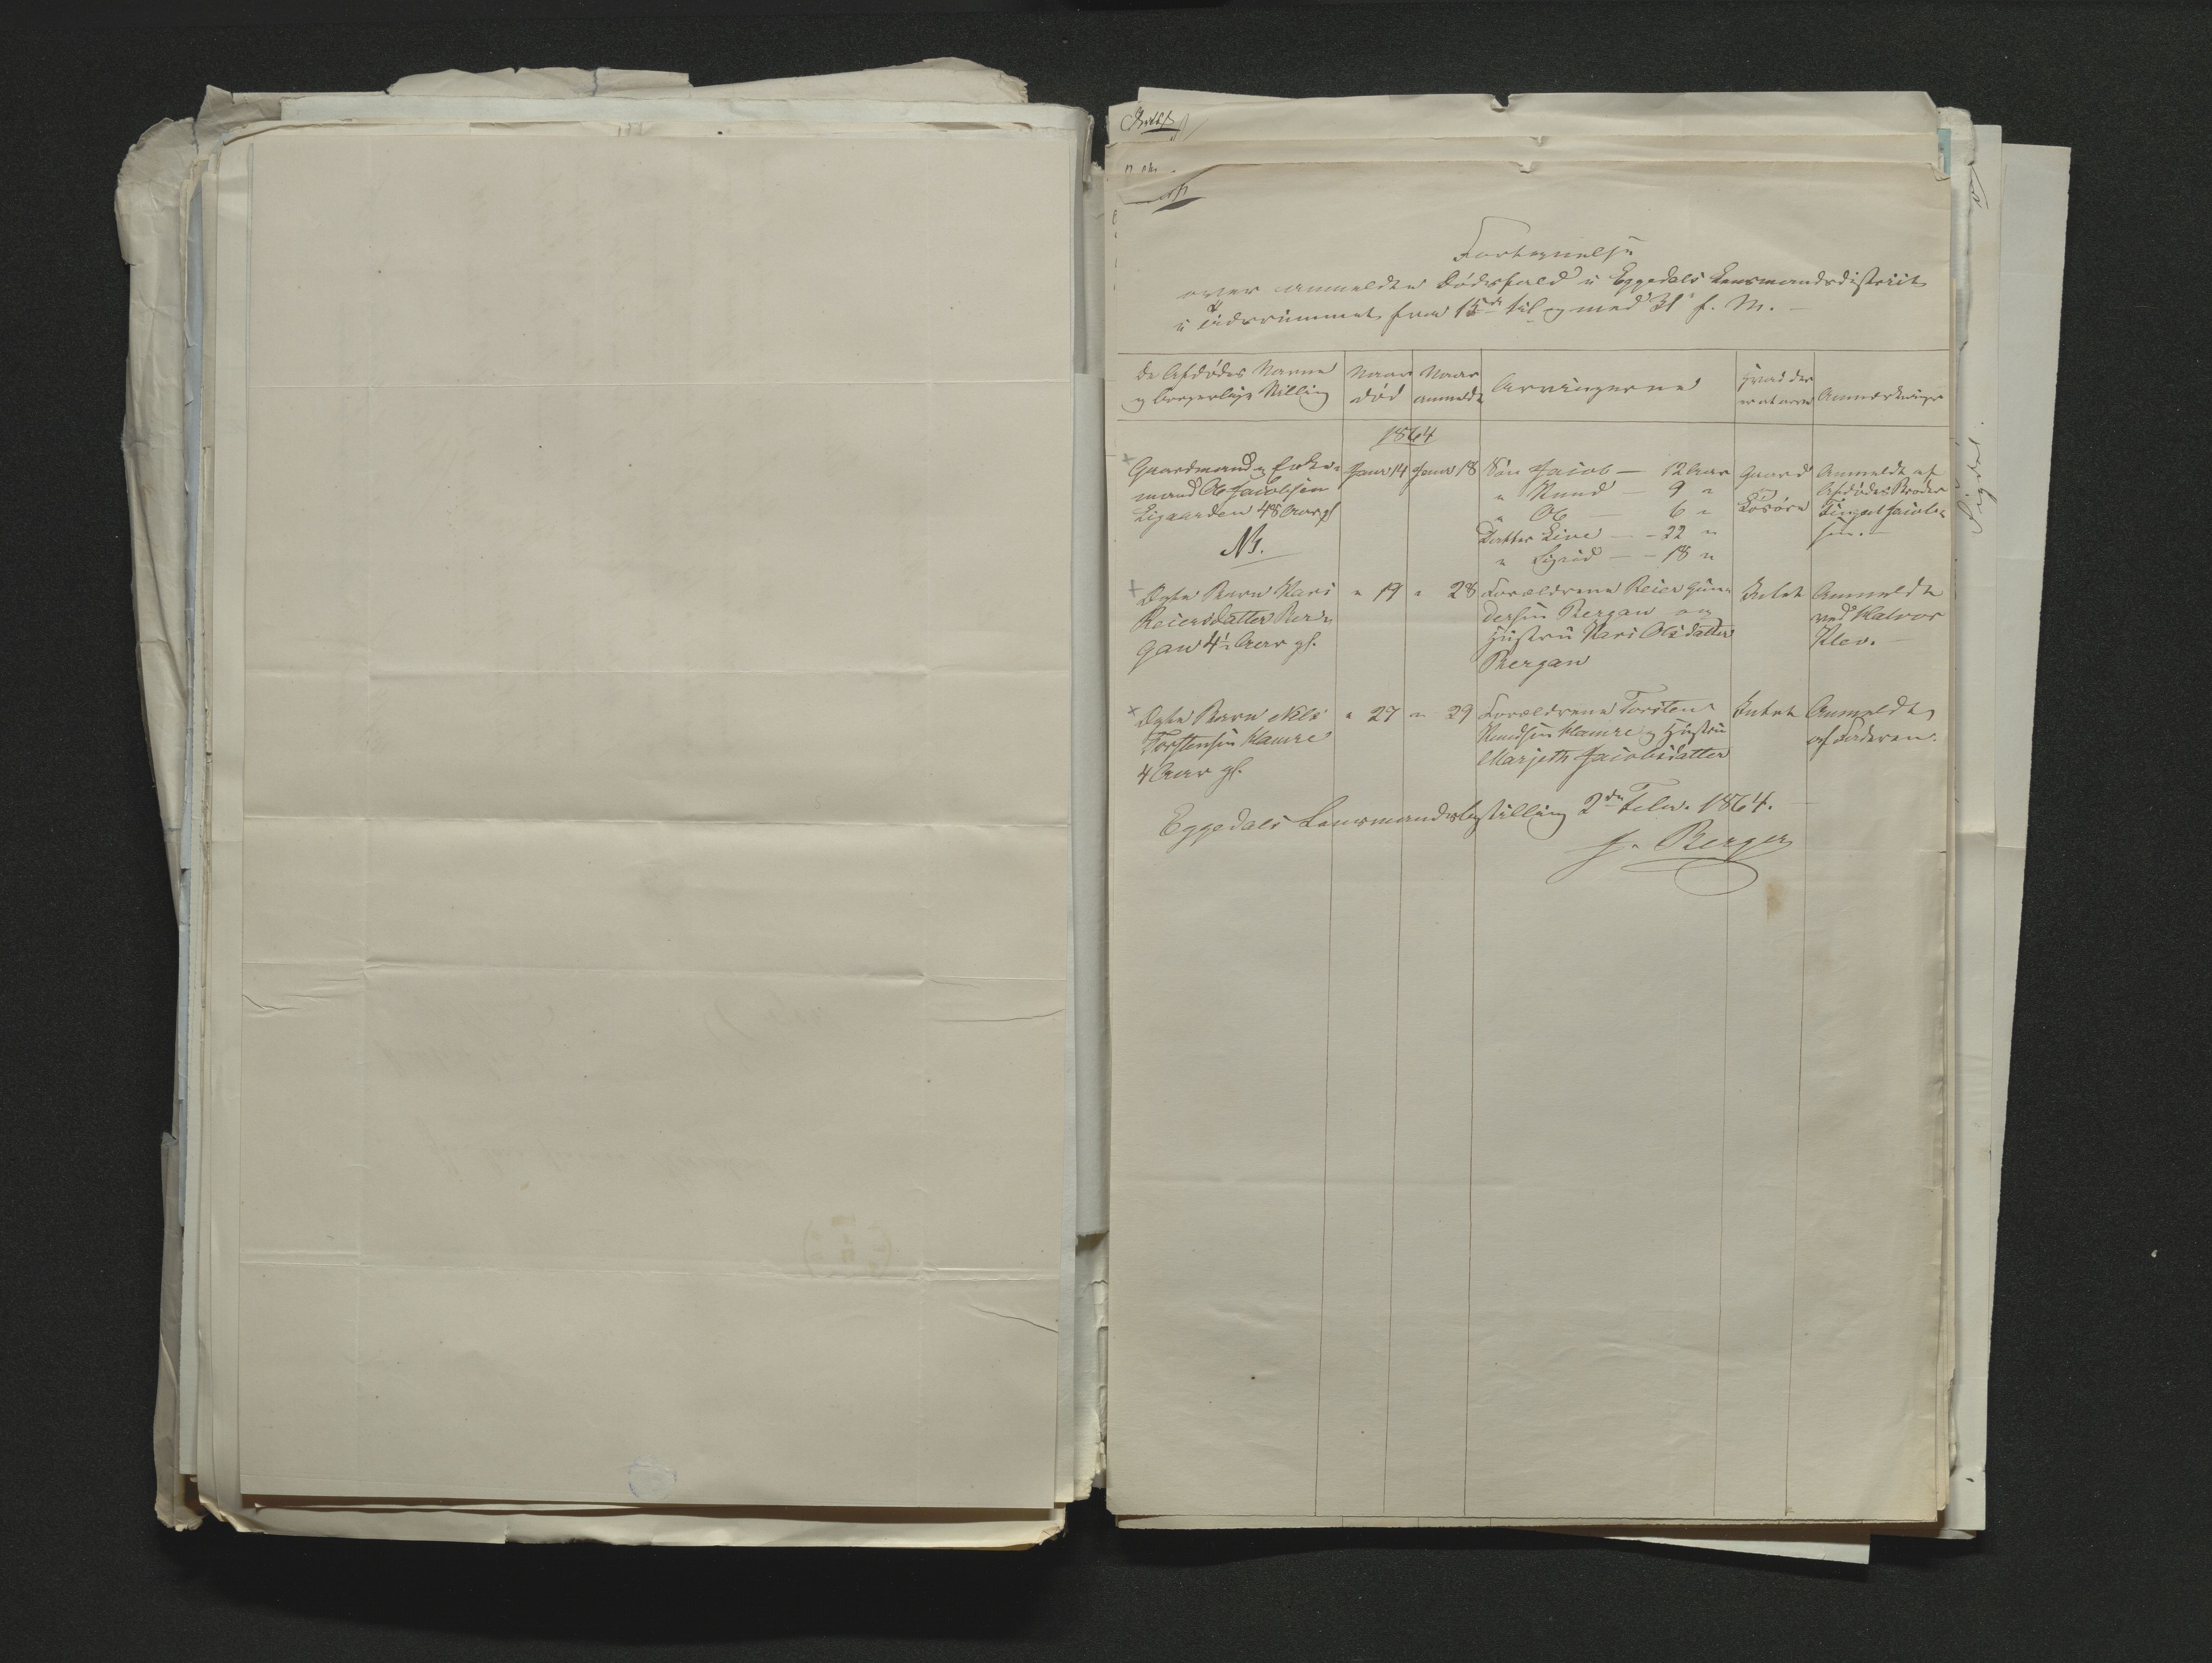 Fortegnelse
over anmeldte Dødsfald i Eggedals Lensmandsdistrict
i Tidsrummet fra 15de til og med 31 f. M. —
De Afdødes Navne
og borgerlige Stilling
Naar
død
Naar
anmeldt
Arvingerne
Hvad der
er at arve
Anmærkninger
1864
Gaardmand og Enke-
mand Ole Jacobsen
Ligaarden 48 Aar gl
NB.
Janr 14
Janr 18
Søn Jacob — 12 Aar
" Knud — 9 "
" Ole — 6 "
Datter Live — 22 "
" Sigrid — 18 "
Gaard
og
Løsøre
Anmeldt af
Afdødes Broder
Jacob-
sen.
Ægte Barn Kari
Reiersdatter Ber-
gan 4½ Aar gl.
" 19
" 28
Forældrene Reier Gun-
dersen Bergan og
Hustru Kari Olsdatter
Bergan
Intet
Anmeldt
ved Halvor
Klev. —
Ægte Barn Nils
Torstensen Hamre
4 Aar gl.
" 27
" 29
Forældrene Torsten
Knudsen Hamre og Hustru
Marjeth Jacobsdatter
Intet
Anmeldt
af Faderen.
Eggedals Lensmandsbestilling 2den Febr. 1864.
J. Berger